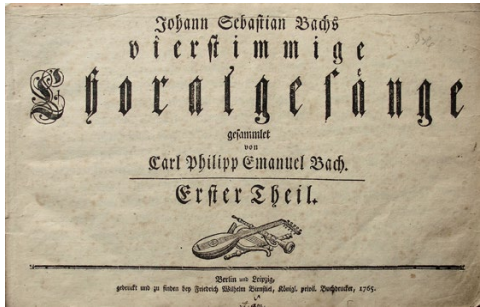 Johann Sebastian Bachs
vierstimmige
Choralgesänge
gesammlet
von
Carl Philipp Emanuel Bach.
Erster Theil.
Berlin und Leipzig,
gedruckt und zu finden bey Friedrich Wilhelm Birnstiel, Königl. privil. Buchdrucker, 1765.